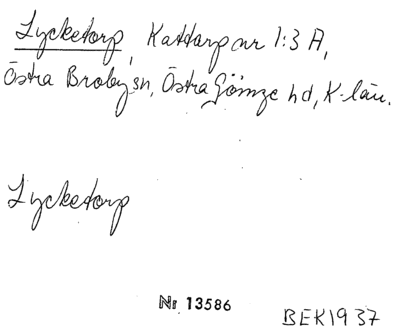 Lycketorp, Kattarp nr 1:3 A,
Östra Broby sn, Östra Göinge hd, K-län.
Lycketorp
Nr 13586
BEK1937